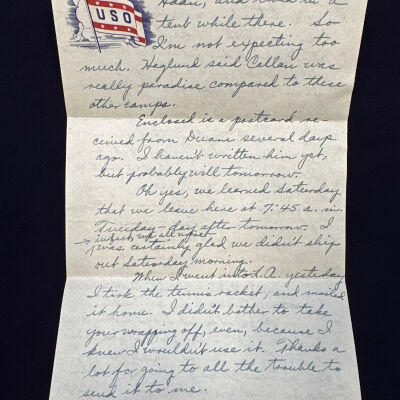 USO
Haan, and lived in a
tent while there. So
I'm not expecting too
much. Haglund said Callan was
really paradise compared to these
other camps.
Enclosed is a postcard re-
ceived from Duane several days
ago. I haven't written him yet,
but probably will tomorrow.
Oh yes, we learned Saturday
that we leave here at 7:45 a.m.
Tuesday - day after tomorrow. I
in fact, we all were
was certainly glad we didn't ship
out Saturday morning.
When I went into L.A. yesterday
I took the tennis racket, and mailed
it home. I didn't bother to take
your wrapping off, even, because I
knew I wouldn't use it. Thanks a
lot for going to all the trouble to
send it to me.